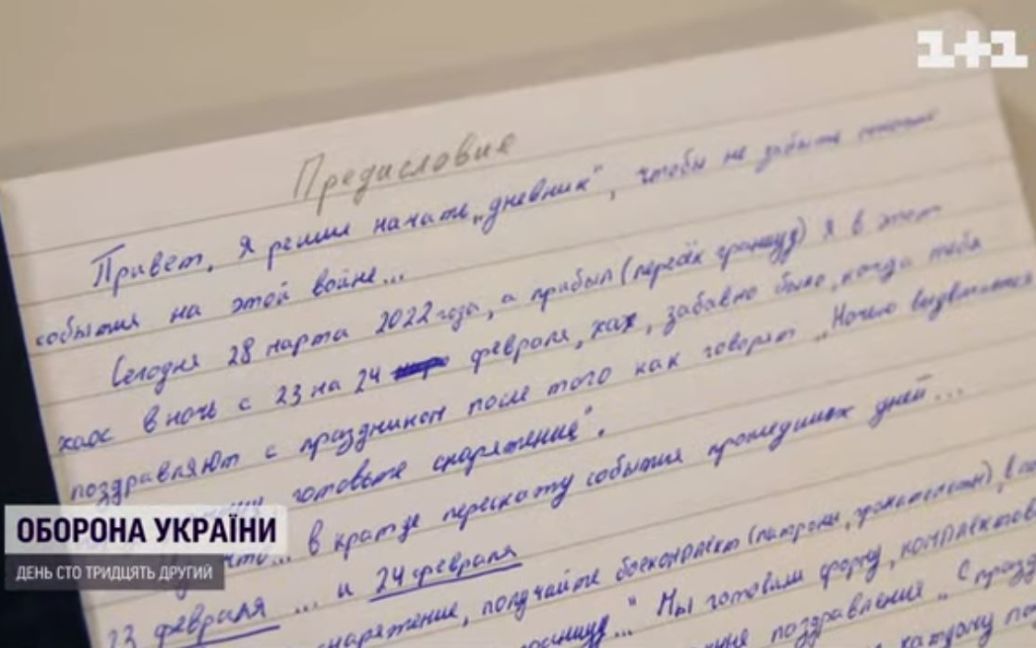 1+1
Предисловие
Привет. Я решил начать „дневник", чтобы не забыть
события на этой войне...
Сегодня 28 марта 2022 года, а прибыл (пересёк границу) я в этот
хаос в ночь с 23 на 24 февраля, хах, забавно было, когда тебя
поздравляют с праздником после того как говорят „Ночью выдвигаемся
готовьте снаряжение".
в кратце перескажу события прошедших дней...
23 февраля ... и 24 февраля
снаряжение, получайте боекомплект (патроны, гранаты
границу..." Мы готовили форму, комплектова
поздравления „С празд
каждому
ОБОРОНА УКРАЇНИ
ДЕНЬ СТО ТРИДЦЯТЬ ДРУГИЙ